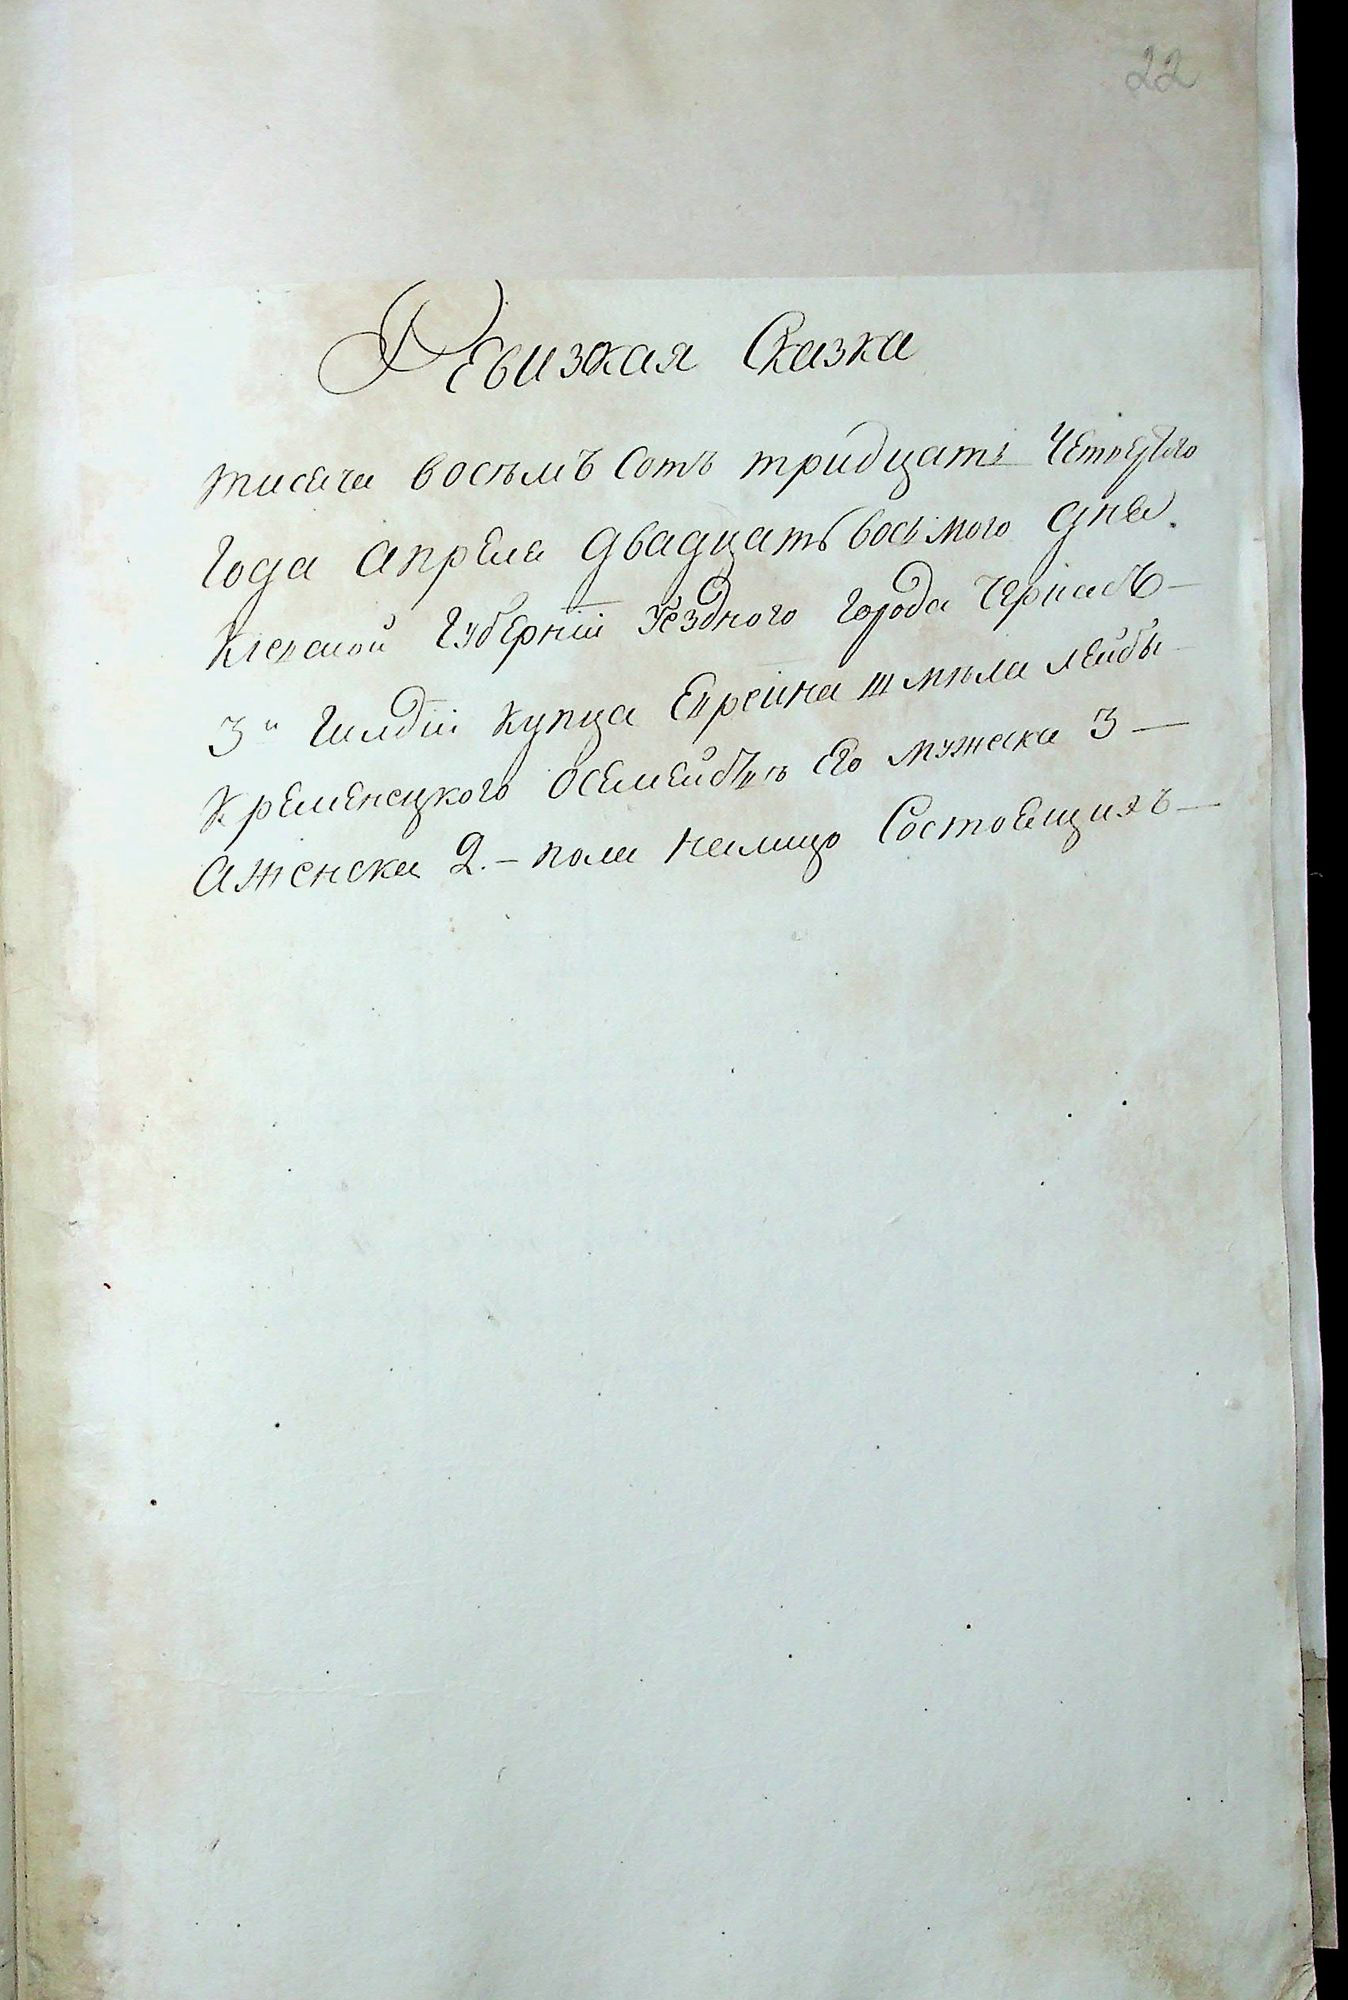 22
Ревизкая Сказка
тисяча восѣмъ сотъ тридцать Четвертого
Года Апреля двадцать восьмого дня.
Киевской Губерніи Уезднаго Города Черкасъ—
3й Гилдіи Купца Евреина Шмиля Лейбы
Кременецкого Осемействѣ Его мужска 3 —
Аженска 2. — пола налицо Состоещихъ —